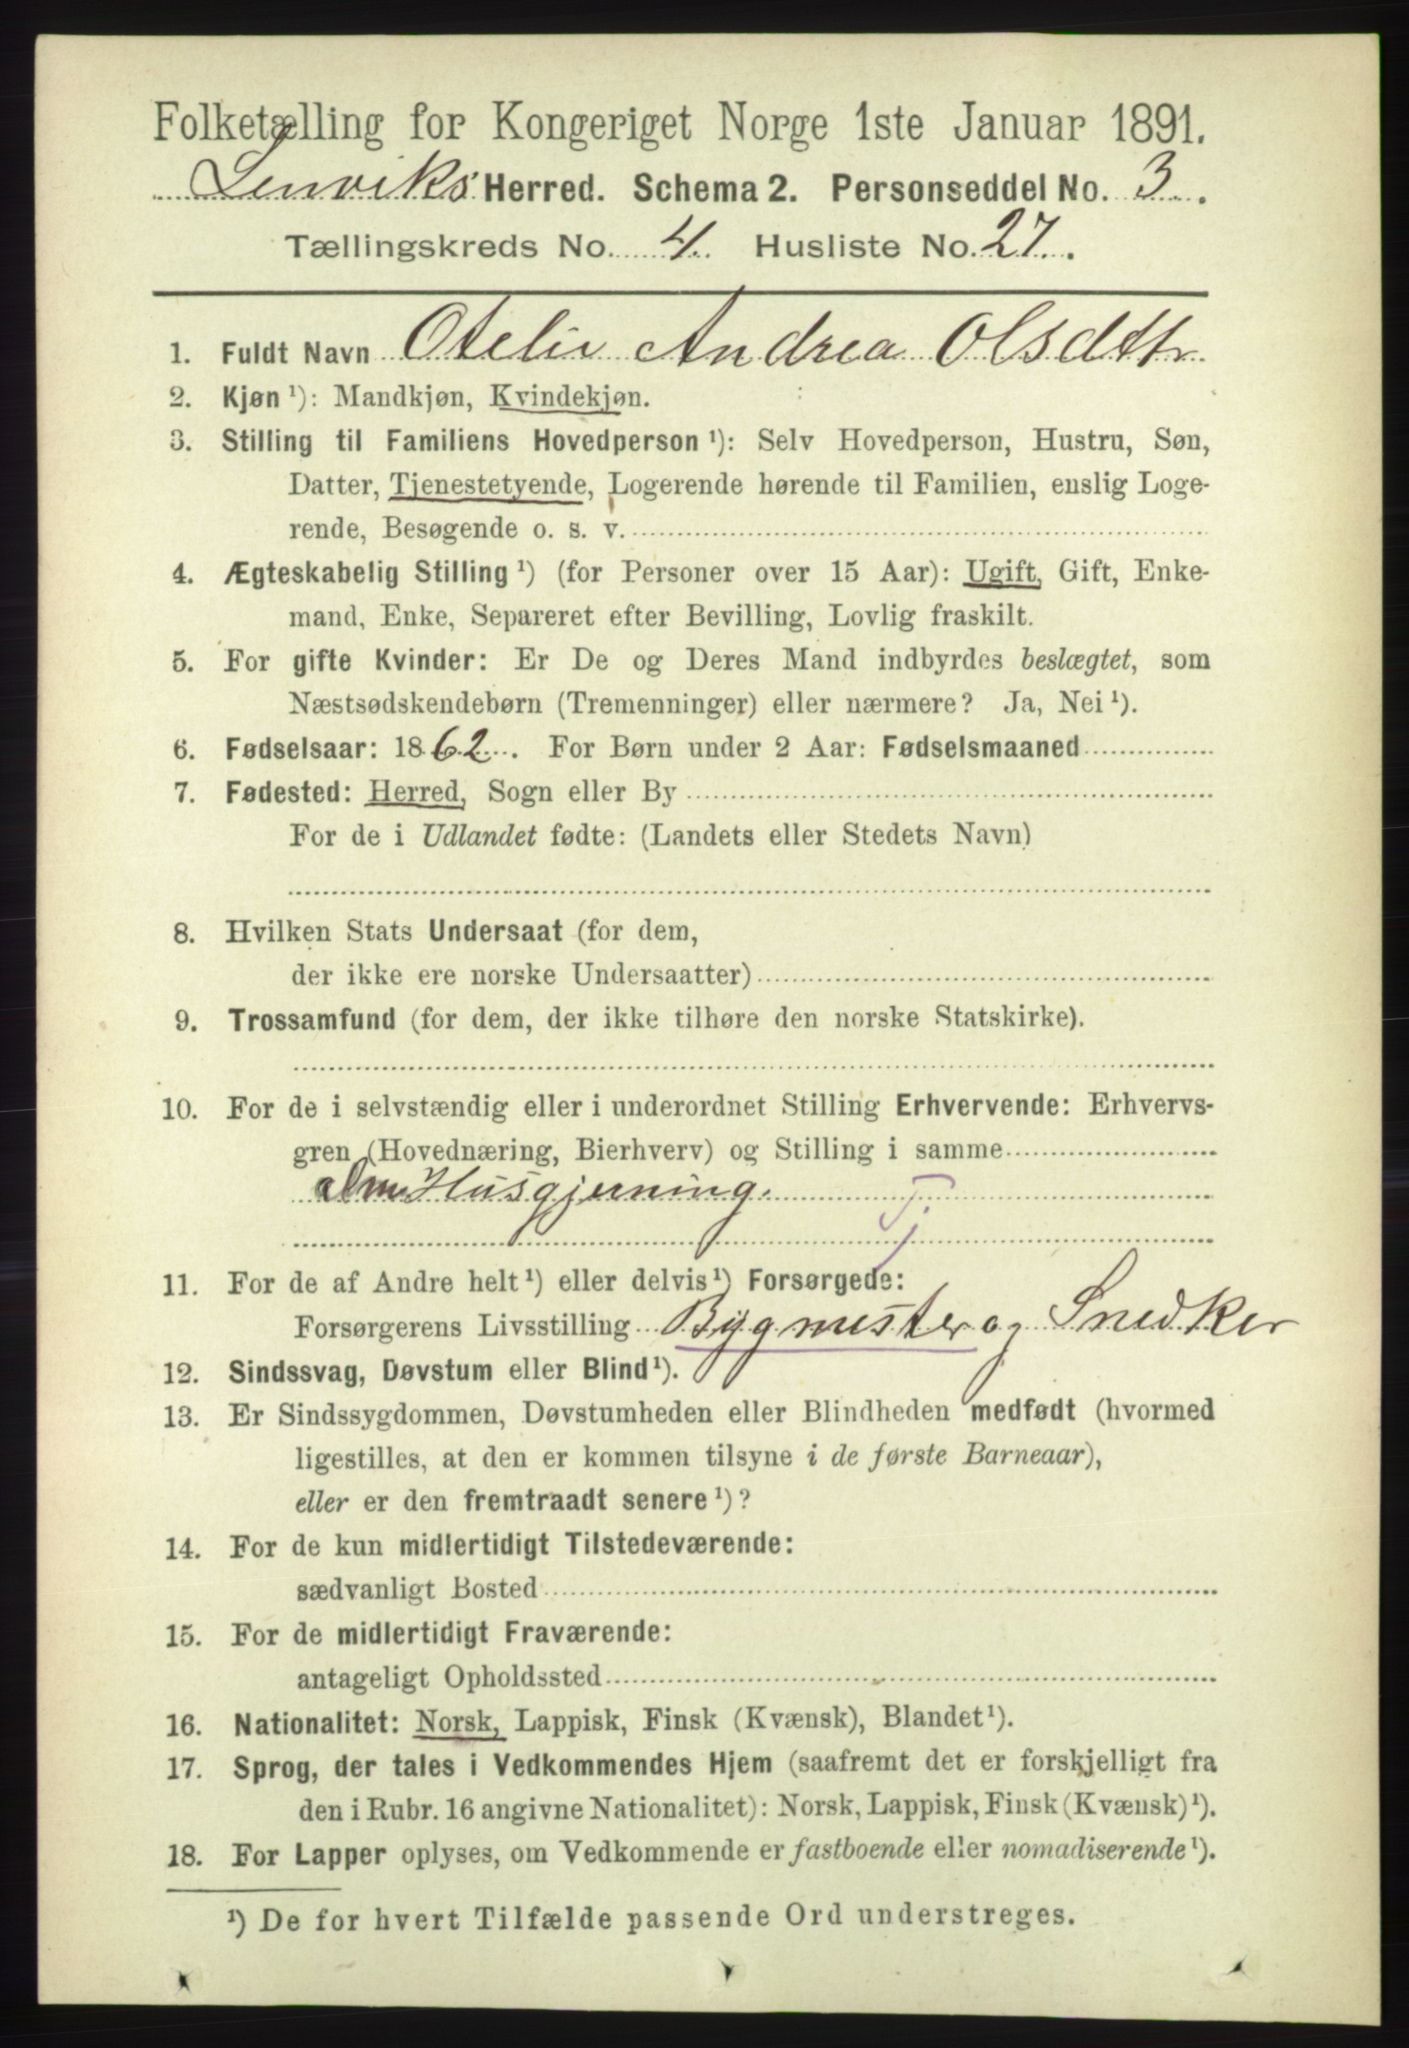 Folketælling for Kongeriget Norge 1ste Januar 1891.
Lenviks Herred. Schema 2. Personseddel No. 3.
Tællingskreds No. 4. Husliste No. 27.
1. Fuldt Navn Otelie Andrea Olsdtr
2. Kjøn ¹): Mandkjøn, Kvindekjøn.
3. Stilling til Familiens Hovedperson ¹): Selv Hovedperson, Hustru, Søn,
Datter, Tjenestetyende, Logerende hørende til Familien, enslig Loge-
rende, Besøgende o. s. v.
4. Ægteskabelig Stilling ¹) (for Personer over 15 Aar): Ugift, Gift, Enke-
mand, Enke, Separeret efter Bevilling, Lovlig fraskilt.
5. For gifte Kvinder: Er De og Deres Mand indbyrdes beslægtet, som
Næstsødskendebørn (Tremenninger) eller nærmere? Ja, Nei ¹).
6. Fødselsaar: 1862. For Børn under 2 Aar: Fødselsmaaned
7. Fødested: Herred, Sogn eller By
For de i Udlandet fødte: (Landets eller Stedets Navn)
8. Hvilken Stats Undersaat (for dem,
der ikke ere norske Undersaatter)
9. Trossamfund (for dem, der ikke tilhøre den norske Statskirke).
10. For de i selvstændig eller i underordnet Stilling Erhvervende: Erhvervs-
gren (Hovednæring, Bierhverv) og Stilling i samme
alm Husgjerning.
Tj
11. For de af Andre helt ¹) eller delvis ¹) Forsørgede:
Forsørgerens Livsstilling Bygmester og Snedker
12. Sindssvag, Døvstum eller Blind ¹).
13. Er Sindssygdommen, Døvstumheden eller Blindheden medfødt (hvormed
ligestilles, at den er kommen tilsyne i de første Barneaar),
eller er den fremtraadt senere ¹)?
14. For de kun midlertidigt Tilstedeværende:
sædvanligt Bosted
15. For de midlertidigt Fraværende:
antageligt Opholdssted
16. Nationalitet: Norsk, Lappisk, Finsk (Kvænsk), Blandet ¹).
17. Sprog, der tales i Vedkommendes Hjem (saafremt det er forskjelligt fra
den i Rubr. 16 angivne Nationalitet): Norsk, Lappisk, Finsk (Kvænsk) ¹).
18. For Lapper oplyses, om Vedkommende er fastboende eller nomadiserende ¹).
¹) De for hvert Tilfælde passende Ord understreges.